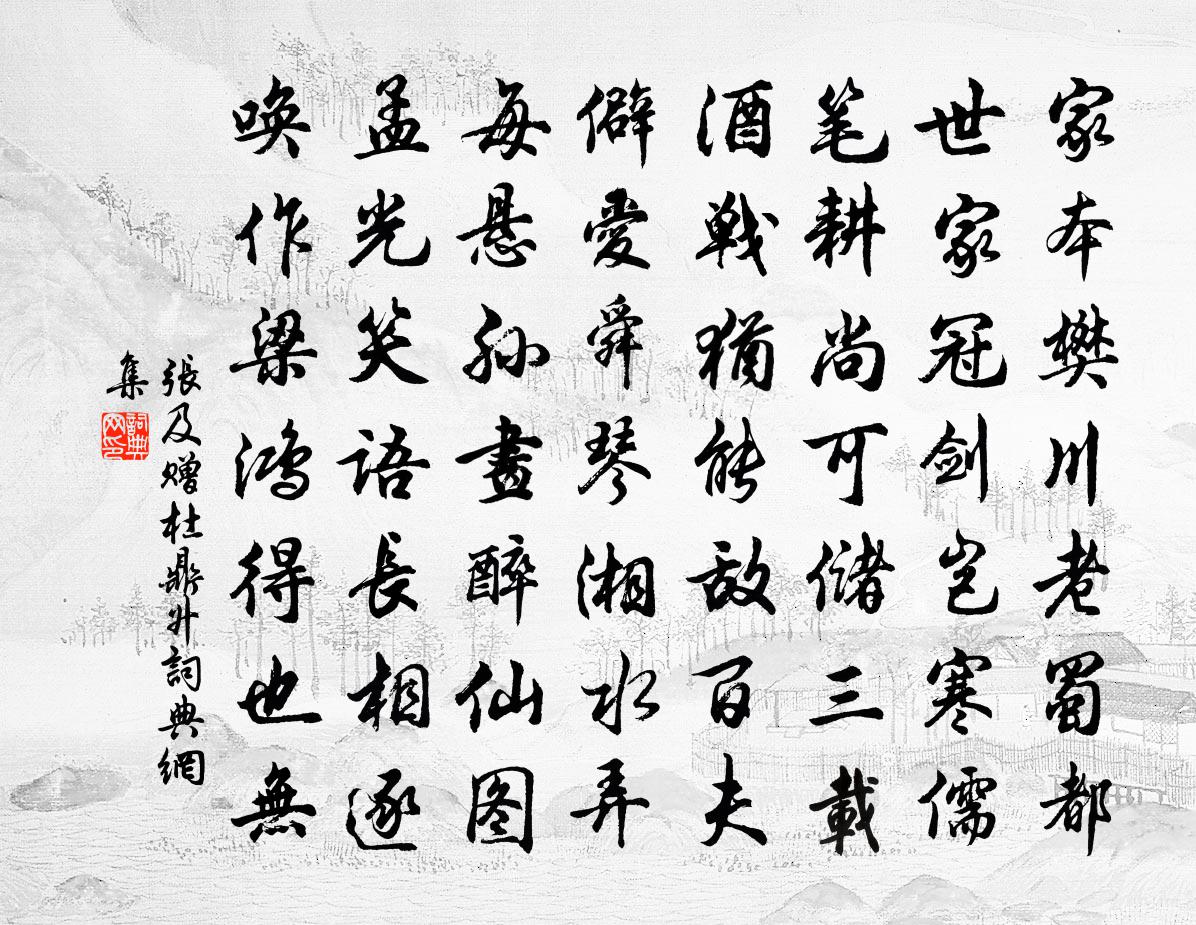 家本樊川老蜀都
世家冠剑岂寒儒
笔耕尚可储三載
酒戦猶能敌百夫
僻愛舜琴湘水弄
每悬孙畫醉仙图
孟光笑语長相逐
唤作梁鸿得也無
張及赠杜鼎升詞典網
集
詞典网印